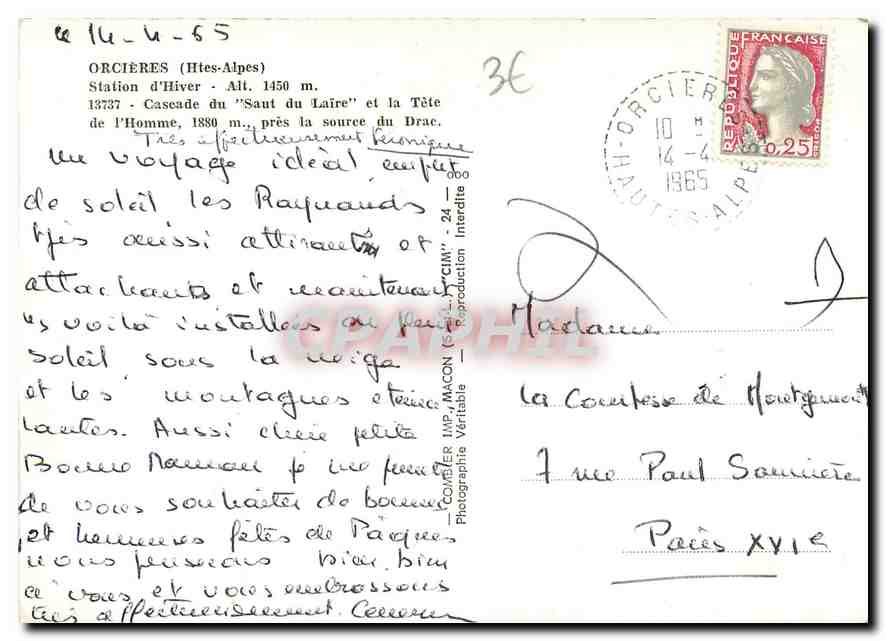 le 14-4-65
ORCIÈRES (Htes-Alpes)
Station d'Hiver - Alt. 1450 m.
13737 - Cascade du "Saut du Laire" et la Tête
de l'Homme, 1880 m., près la source du Drac.
Très affectueusement Véronique
Un voyage idéal emplit
de soleil les Raynauds
très aussi attirants et
attachants et maintenant
les voilà installées au plein
soleil sous la neige
et les montagnes étince
lantes. Aussi chère petite
Bonne Maman je me permets
de vous souhaiter de bonnes
et heureuses fêtes de Pâques
nous pensons bien bien
à vous et vous embrassons
très affectueusement.
COMBIER IMP., MACON (S.-&-L.) "CIM" - 24 - ooo
Photographie Véritable - Reproduction Interdite
3€
ORCIERES
10 H
14-4
1965
HAUTES-ALPES
REPUBLIQUE FRANÇAISE
0,25
CPAPHIL
Madame
La Comtesse de
7 rue Paul
Paris XVIe